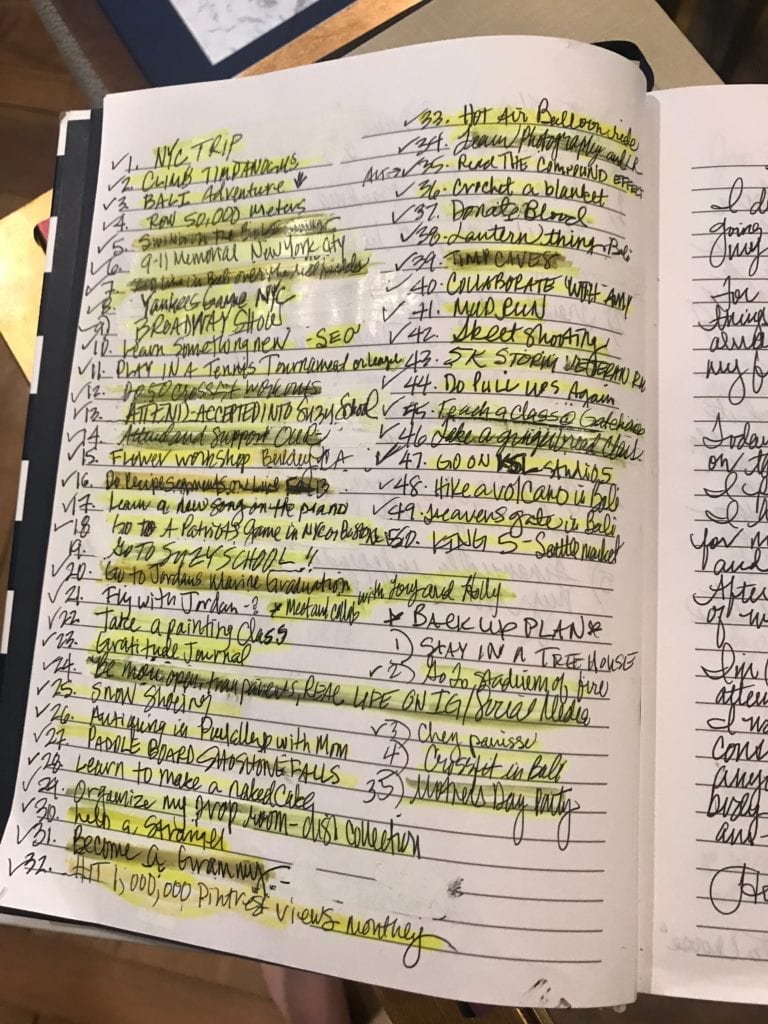 ✓1. NYC TRIP
✓2. CLIMB TIMPANOGUS
✓3 BALI Adventure ↓
✓4. ROW 50,000 meters
✓5. Swim in the
✓6. 9-11 Memorial New York City
✓7. in Bali over the
✓8. Yankees Game NYC
✓9) BROADWAY SHOW
✓10. Learn Something new - SEO
✓11. PLAY IN A Tennis Tournament or league
✓12. Do 50 Crossfit workouts
✓13. ATTEND-ACCEPTED INTO SUZY School
✓14. Attend and Support
✓15. Flower workshop CA
✓16. Do segments on Live
✓17. Learn a new song on the piano
✓18. Go to A Patriots game in NYC or
19. GO TO SUZY SCHOOL!!
✓20. Go to Jordans Marine Graduation
✓21. Fly with Jordan -? * Meet and collab with Tory and Holly
✓22. Take a painting Class
✓23. Gratitude Journal
✓24. Be more open, transparent, REAL LIFE ON IG/Social Media
✓25. SNOW Shoeing
✓26. Antiquing in with Mom
✓27. PADDLE BOARD SHOSHONE FALLS
✓28. Learn to make a naked Cake
✓29. Organize my prop room - dish collection
✓30. help a stranger
✓31. Become a Grammy -
✓32. HIT 1,000,000 Pintrest views monthey
✓33. Hot Air Balloon ride
✓34. Learn Photography and LR
✓35. Read THE COMPOUND EFFECT
✓36. Crochet a blanket
✓37. Donate Blood
✓38. Lantern thing - Bali
✓39. TIMP CAVES
✓40. COLLABORATE WITH AMY
✓41. MUD RUN
✓42. Skeet Shooting
✓43. 5K STORM VETERAN
✓44. Do Pull ups Again
✓45. Teach a class @
✓46. Take a gingerbread Class
✓47. GO ON KSL STUDIOS
✓48. Hike a volcano in Bali
✓49. heavens gate in Bali
✓50. KING 5 - Seattle market
* BACK UP PLAN *
1) STAY IN A TREE HOUSE
✓2) Go to stadium of fire
✓3) Chez panisse
4) Crossfit in Bali
5) Mothers Day Party